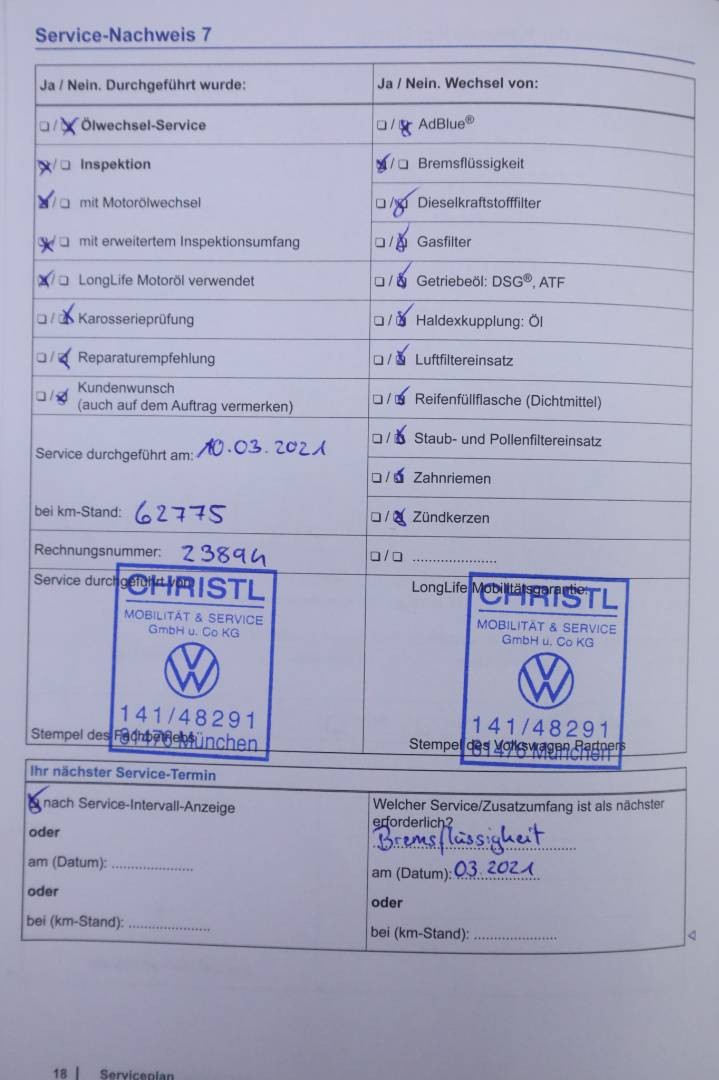 Service-Nachweis 7
Ja / Nein. Durchgeführt wurde:
❏ / ❏ Ölwechsel-Service
❏ / ❏ Inspektion
❏ / ❏ mit Motorölwechsel
❏ / ❏ mit erweitertem Inspektionsumfang
❏ / ❏ LongLife Motoröl verwendet
❏ / ❏ Karosserieprüfung
❏ / ❏ Reparaturempfehlung
❏ / ❏ Kundenwunsch
(auch auf dem Auftrag vermerken)
Service durchgeführt am: 10.03.2021
bei km-Stand: 62775
Rechnungsnummer: 23894
Service durchgeführt von:
CHRISTL
MOBILITÄT & SERVICE
GmbH u. Co KG
141/48291
81476 München
Stempel des Fachbetriebs
Ja / Nein. Wechsel von:
❏ / ❏ AdBlue®
❏ / ❏ Bremsflüssigkeit
❏ / ❏ Dieselkraftstofffilter
❏ / ❏ Gasfilter
❏ / ❏ Getriebeöl: DSG®, ATF
❏ / ❏ Haldexkupplung: Öl
❏ / ❏ Luftfiltereinsatz
❏ / ❏ Reifenfüllflasche (Dichtmittel)
❏ / ❏ Staub- und Pollenfiltereinsatz
❏ / ❏ Zahnriemen
❏ / ❏ Zündkerzen
❏ / ❏ .....................
LongLife Mobilitätsgarantie:
CHRISTL
MOBILITÄT & SERVICE
GmbH u. Co KG
141/48291
81476 München
Stempel des Volkswagen Partners
Ihr nächster Service-Termin
❏ nach Service-Intervall-Anzeige
oder
am (Datum): ....................
oder
bei (km-Stand): ....................
Welcher Service/Zusatzumfang ist als nächster
erforderlich?
Bremsflüssigkeit
am (Datum): 03.2021
oder
bei (km-Stand): ....................
18 | Serviceplan